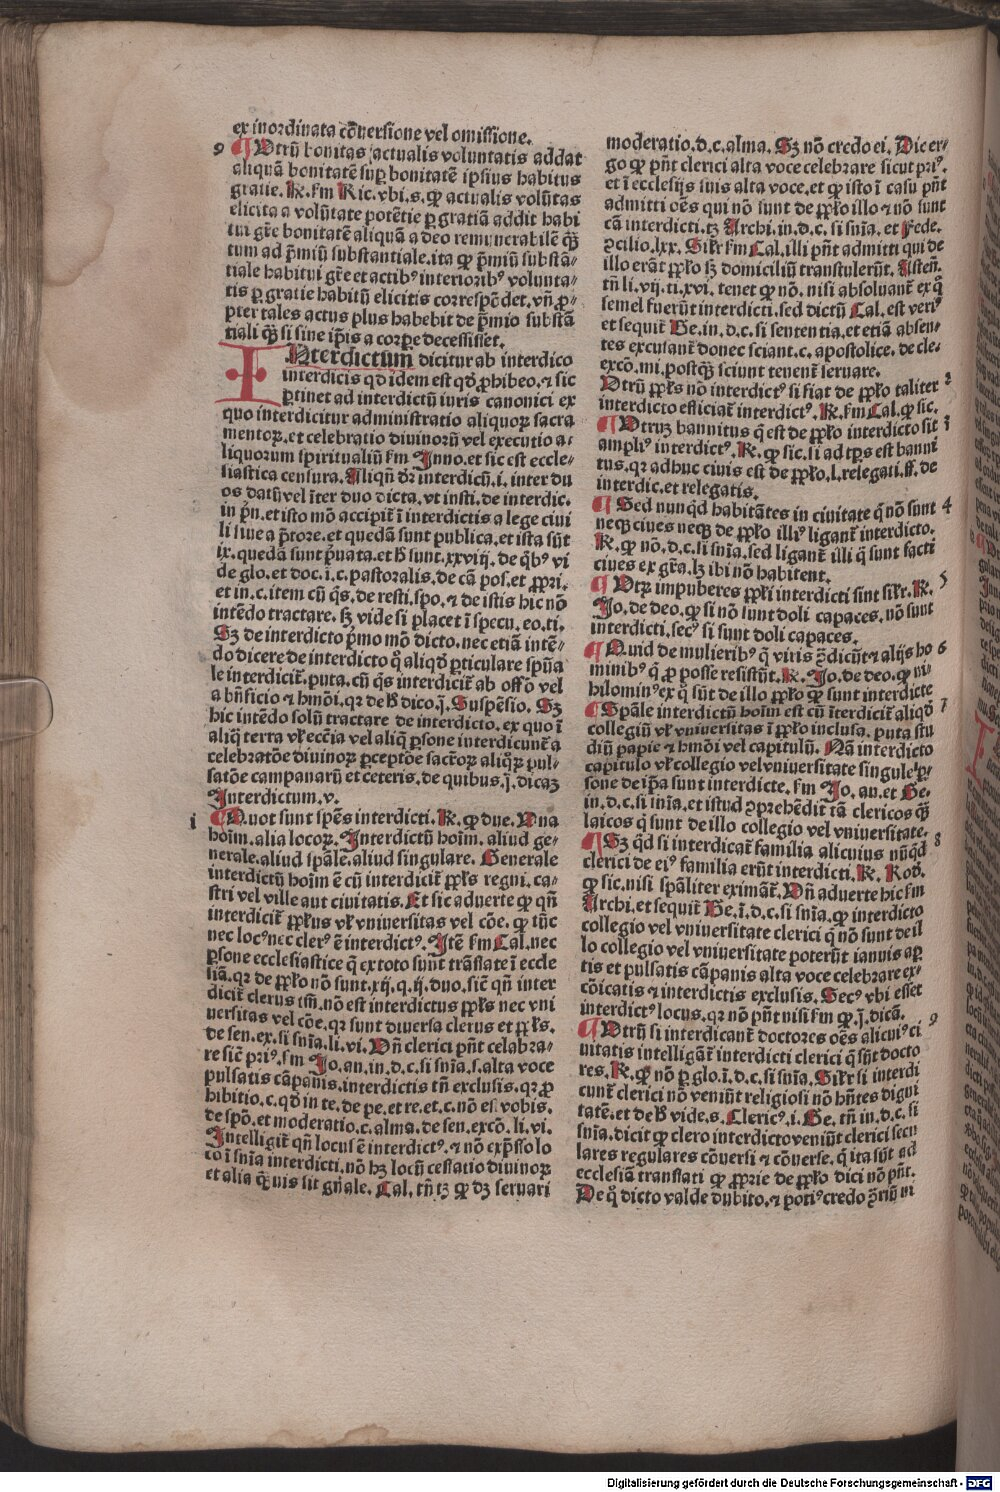 ex inordinata cōuersione vel omissione.
9 ¶ Vtrū bonitas actualis voluntatis addat
aliquā bonitatē sup bonitatē ipsius habitus
gratie. R. km Ric. vbi. s. qp actualis volūtas
elicita a volūtate potētie p gratiā addit habi
tui gr̄e bonitatē aliquā a deo remunerabilē q̄ȝ
tum ad p̄miū substantiale. ita qp p̄miū substā-
tiale habitui gr̄e et actibꝰ interioribꝰ volunta-
tis p gratie habitū elicitis correspōdet. vn̄ p̄o-
pter tales actus plus habebit de p̄mio substā
tiali q̄ȝ si sine ip̄is a corpe decessisset.
INterdictum dicitur ab interdico
interdicis qd̄ idem est qd̄ phibeo. ⁊ sic
ptinet ad interdictū iuris canonici ex
quo interdicitur administratio aliquoꝝ sacra
mentoꝝ. et celebratio diuinorū vel executio a-
liquorum spiritualiū km Inno. et sic est eccle-
siastica censura. Aliqn̄ dr̄ interdictū. i. inter du
os datū vel īter duo dicta. vt insti. de interdic.
in p̄n. et isto mō accipit̄ ī interdictis a lege ciui
li siue a p̄tore. et quedā sunt publica. et ista sūt
ix. quedā sunt p̄uata. et h̄ sunt. xxviij. de q̄bꝰ vi
de glo. et doc. ī. c. pastoralis. de cā pos. et p̄pri.
et in. c. item cū q̄s. de resti. spo. ⁊ de istis hic nō
intēdo tractare. sȝ vide si placet ī specu. eo. ti.
Sȝ de interdicto p̄mo mō dicto. nec etiā intē-
do dicere de interdicto q̄ aliqd̄ pticulare sp̄ua
le interdicit̄. puta. cū q̄s interdicit̄ ab offō vel
a bn̄ficio ⁊ hmōi. qꝛ de h̄ dico. j. Suspēsio. Sȝ
hic intēdo solū tractare de interdicto. ex quo ī
aliq̄ terra vł ecc̄ia vel aliq̄ psone interdicunt̄ a
celebratōe diuinoꝝ pceptōe sac̄roꝝ aliq̄ꝝ pul-
satōe campanarū et ceteris. de quibus. j. dicaȝ
Interdictum. v.
i ¶ Quot sunt sp̄es interdicti. R. qp due. Una
hoim̄. alia locoꝝ. Interdictū hoim̄. aliud ge-
nerale. aliud sp̄ale. aliud singulare. Generale
interdictū hoim̄ ē cū interdicit̄ ppl̄s regni. ca-
stri vel ville aut ciuitatis. Et sic aduerte qp qn̄
interdicit̄ ppl̄us vł vniuersitas vel cōe. qp tūc
nec locꝰ nec clerꝰ ē interdictꝰ. Itē km Cal. nec
psone ecclesiastice q̄ ex toto sunt trāslate ī eccle
siā. qꝛ de pplo nō sunt. xij. q. ij. duo. sic̄ qn̄ inter
dicit̄ clerus tn̄. nō est interdictus ppl̄s nec vni
uersitas vel cōe. qꝛ sunt diuersa clerus et ppl̄s.
de sen. ex. si sn̄ia. li. vi. Vn̄ clerici pn̄t celabra-
re sic̄ priꝰ. km Jo. an. in. d. c. si sn̄ia. s. alta voce
pulsatis cāpanis. interdictis tn̄ exclusis. qꝛ p̄o
hibitio. c. qd̄ in te. de pe. et re. et. c. nō est vobis.
de spō. et moderatio. c. alma. de sen. excō. li. vi.
Intelligit̄ qn̄ locus ē interdictꝰ. ⁊ nō exp̄sso lo
co ī sn̄ia interdicti. nō hȝ locū cessatio diuinoꝝ
et alia q̄uis sit gn̄ale. Cal. tn̄ tȝ qp dȝ seruari
moderatio. d. c. alma. Sȝ nō credo ei. Dic er-
go qp pn̄t clerici alta voce celebrare sicut priꝰ.
et ī ecclesijs suis alta voce. et qp isto ī casu pn̄t
admitti oēs qui nō sunt de pplo illo ⁊ nō sunt
cā interdicti. tȝ Archi. in. d. c. si sn̄ia. et Fede.
ↄcilio. lxx. Siłr km Cal. illi pn̄t admitti qui de
illo erāt pplo sȝ domiciliū transtulerūt. Asten̄.
tn̄ li. vij. ti. xvi. tenet qp nō. nisi absoluant̄ ex q̄
semel fuerūt interdicti. sed dictū Cal. est veriꝰ
et sequit̄ Ge. in. d. c. si sententia. et etiā absen-
tes excusant̄ donec sciant. c. apostolice. de cle-
excō. mi. postq̄ȝ sciunt tenent̄ seruare.
Vtrū ppl̄s nō interdictꝰ si fiat de pplo taliter 2
interdicto efficiat̄ interdictꝰ. R. km Cal. qp sic.
¶ Vtruȝ bannitus q̄ est de pplo interdicto sit 3
ampliꝰ interdictꝰ. R. qp sic. si ad tp̄s est banni
tus. qꝛ adhuc ciuis est de pplo. l. relegati. ff. de
interdic. et relegatis.
¶ Sed nunqd̄ habitātes in ciuitate q̄ nō sunt 4
neqȝ ciues neqȝ de pplo illiꝰ ligant̄ interdicto.
R. qp nō. d. c. si sn̄ia. sed ligant̄ illi q̄ sunt facti
ciues ex gr̄a. lȝ ibi nō habitent.
¶ Vtꝝ impuberes ppli interdicti sint siłr. R. 5
Jo. de deo. qp si nō sunt doli capaces. nō sunt
interdicti. secꝰ si sunt doli capaces.
¶ Quid de mulieribꝰ q̄ viris ↄ̄dicūt ⁊ alijs ho 6
minibꝰ q̄ p posse resistūt. R. Jo. de deo. qp ni-
hilominꝰ ex q̄ sūt de illo pplo qp sunt interdicte
¶ Sp̄ale interdictū hoim̄ est cū īterdicit̄ aliqd̄ 7
collegiū vł vniuersitas ī pplo inclusa. puta stu
diū papie ⁊ hmōi vel capitulū. Nā interdicto
capitulo vł collegio vel vniuersitate singule p-
sone de ip̄a sunt interdicte. km Jo. an. et Ge.
in. d. c. si sn̄ia. et istud ↄprehēdit tā clericos q̄ȝ
laicos q̄ sunt de illo collegio vel vniuersitate.
¶ Sȝ qd̄ si interdicat̄ familia alicuius nūqd̄ 8
clerici de eiꝰ familia erūt interdicti. R. Rod.
qp sic. nisi sp̄aliter eximāt̄. Vn̄ aduerte hic km
Archi. et sequit̄ Ge. ī. d. c. si sn̄ia. qp interdicto
collegio vel vniuersitate clerici q̄ nō sunt de il
lo collegio vel vniuersitate poterūt ianuis ap
tis et pulsatis cāpanis alta voce celebrare ex-
cōicatis ⁊ interdictis exclusis. Secꝰ vbi esset
interdictꝰ locus. qꝛ nō pn̄t nisi km qp. j. dicā.
¶ Vtrū si interdicant̄ doctores oēs alicuiꝰ ci 9
uitatis intelligāt̄ interdicti clerici q̄ sūt docto
res. R. qp nō p glo. ī. d. c. si sn̄ia. Siłr si interdi
cunt̄ clerici nō veniūt religiosi nō hn̄tes digni
tatē. et de h̄ vide. s. Clericꝰ. i. Ge. tn̄ in. d. c. si
sn̄ia. dicit qp clero interdicto veniūt clerici secu
lares regulares cōuersi ⁊ cōuerse. q̄ ita sūt ad
ecclesiā translati qp p̄prie de pplo dici nō pn̄t.
De q̄ dicto valde dubito. ⁊ potiꝰ credo ↄ̄riū ni
Digitalisierung gefördert durch die Deutsche Forschungsgemeinschaft - DFG